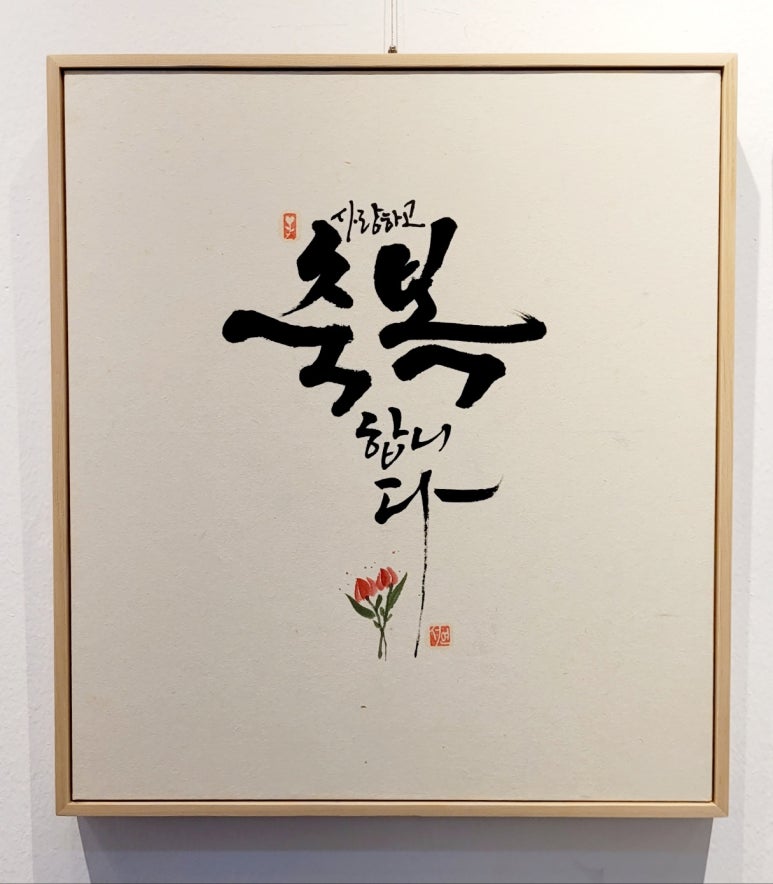 사랑하고
축복
합니
다